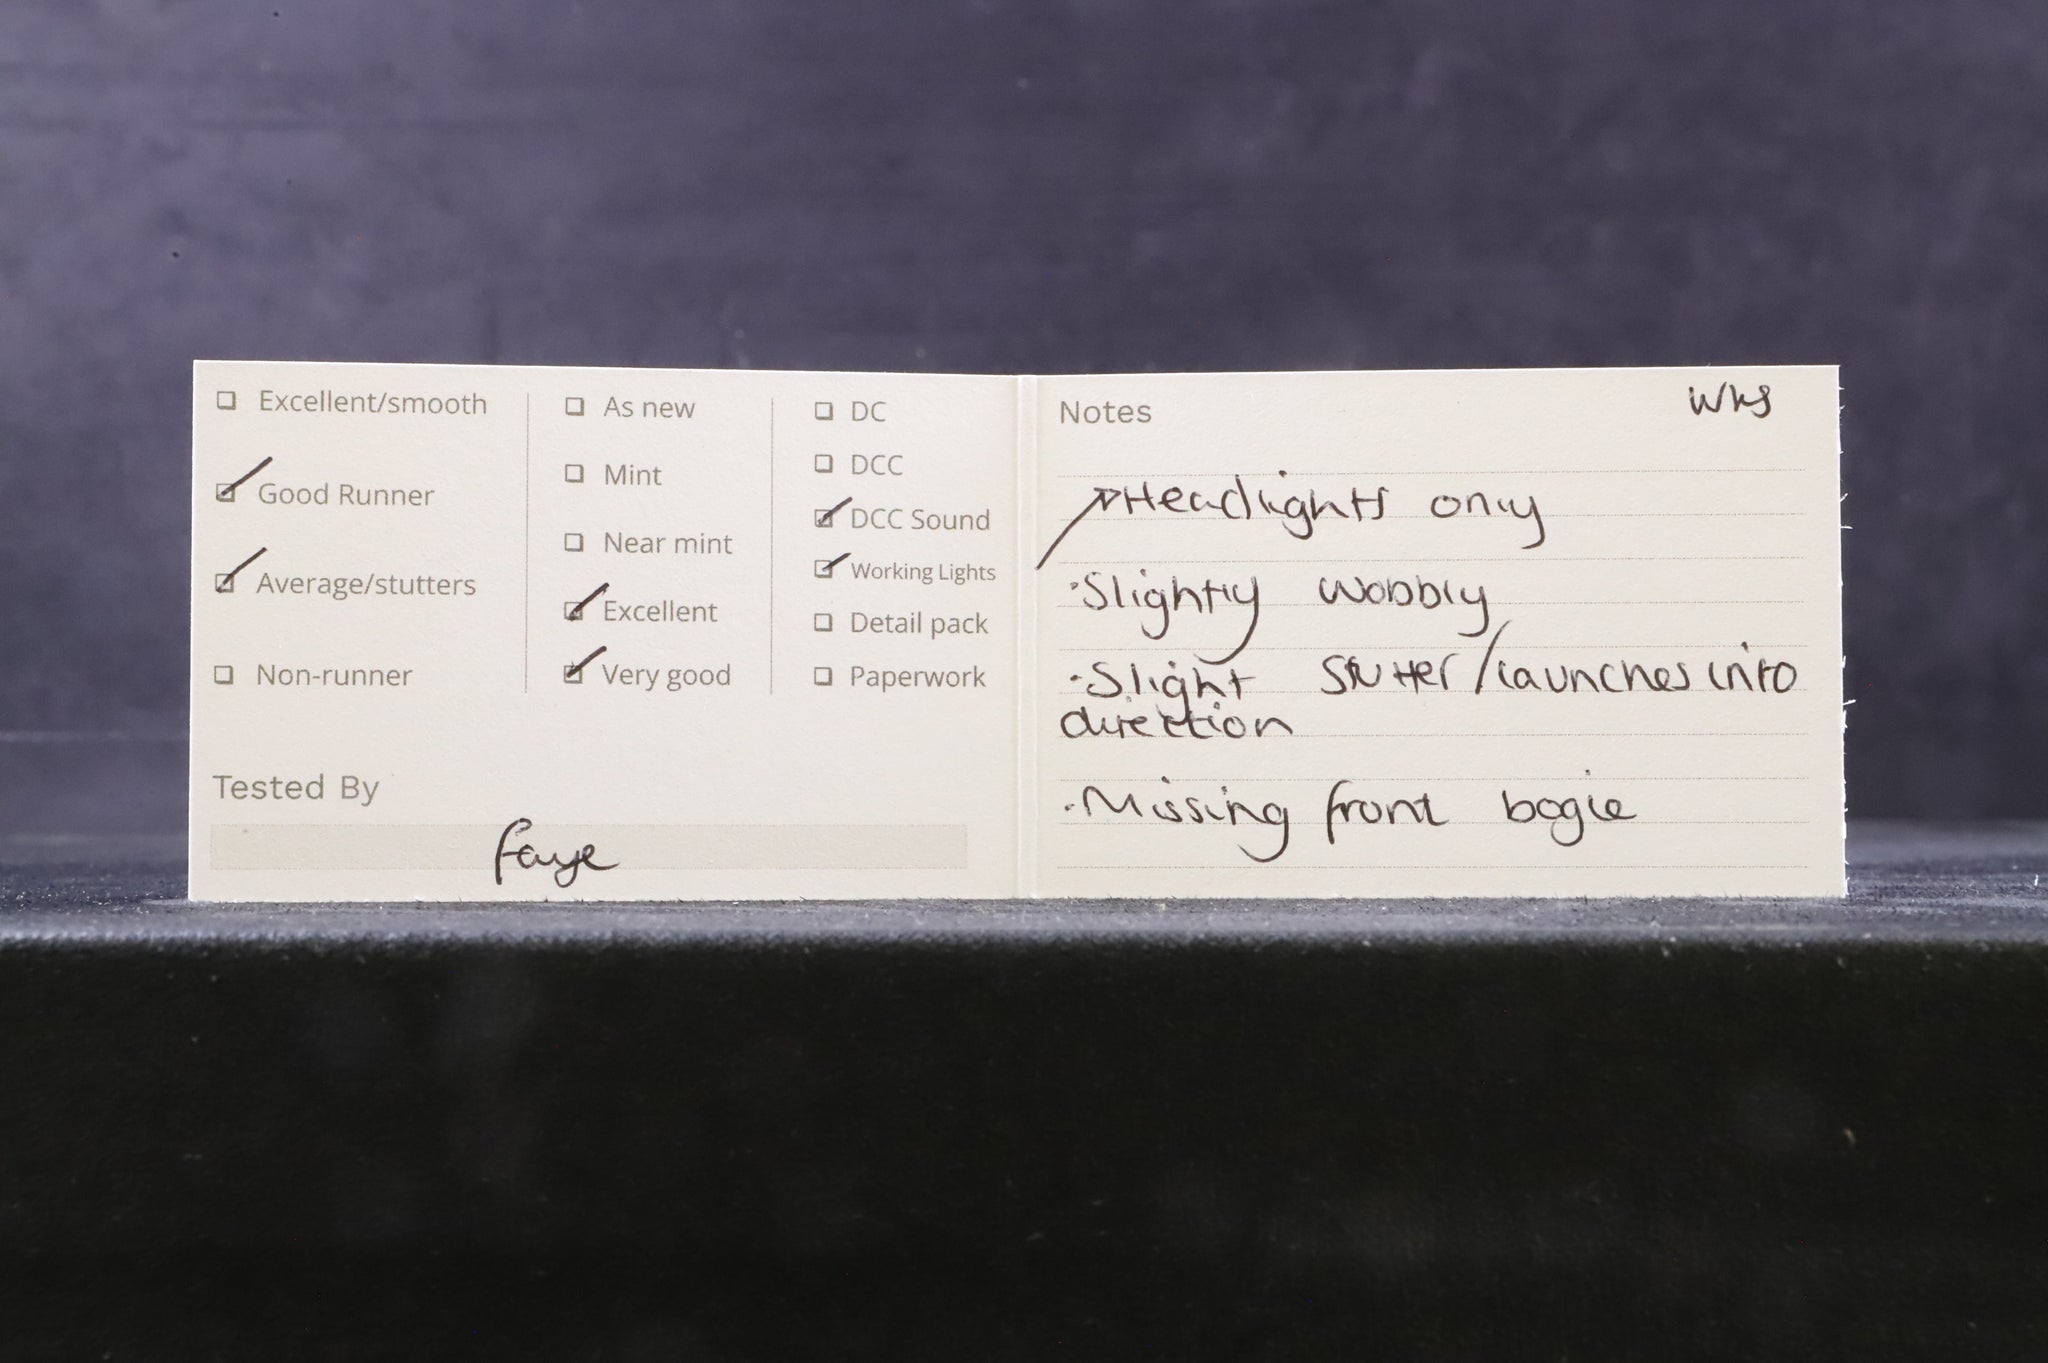 Excellent/smooth
Good Runner
Average/stutters
Non-runner
As new
Mint
Near mint
Excellent
Very good
DC
DCC
DCC Sound
Working Lights
Detail pack
Paperwork
Tested By
Faye
Notes
Headlights only
·Slightly wobbly
·Slight stutter/launches into
direction
·Missing front bogie